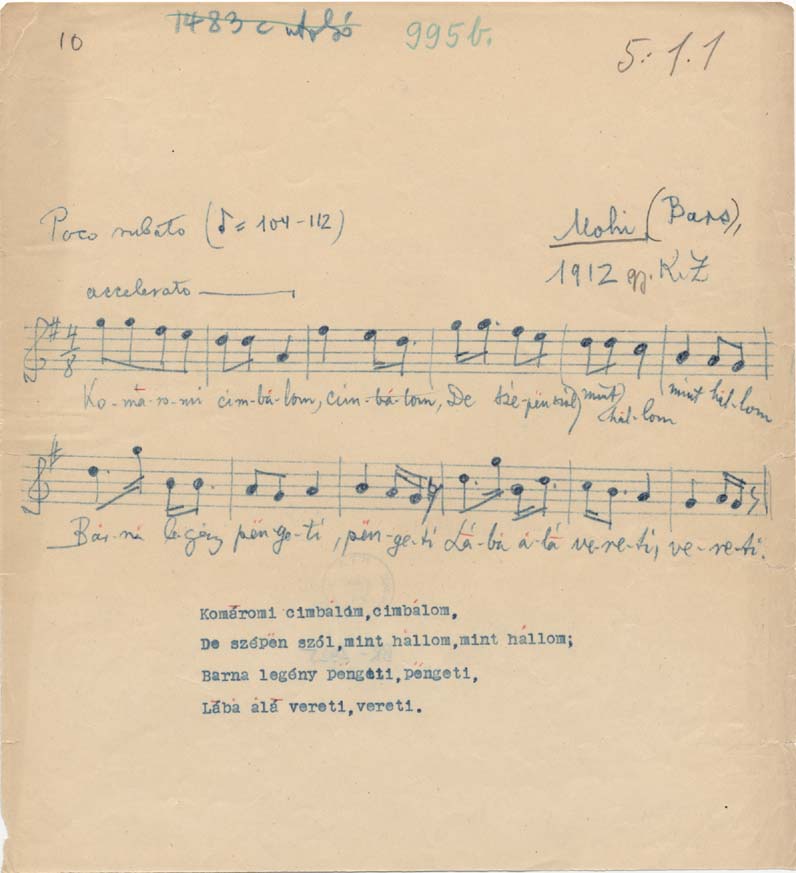 10
1483 c utolsó
995 b.
5. 1. 1
Poco rubato (♪ = 104-112)
Mohi (Bars),
1912 gy. K.Z
accelerato
4/8
Ko-má-ro-mi cim-bá-lom, cim-bá-lom, De szé-pën szól, mint hál-lom mint hál-lom
Bar-na legény pën-ge-ti, pën-ge-ti Lá-ba a-lá ve-re-ti, ve-re-ti.
Komáromi cimbalom,cimbálom,
De szépën szól,mint hallom,mint hállom;
Barna legény pëngeti,pëngeti,
Lába alá vereti,vereti.